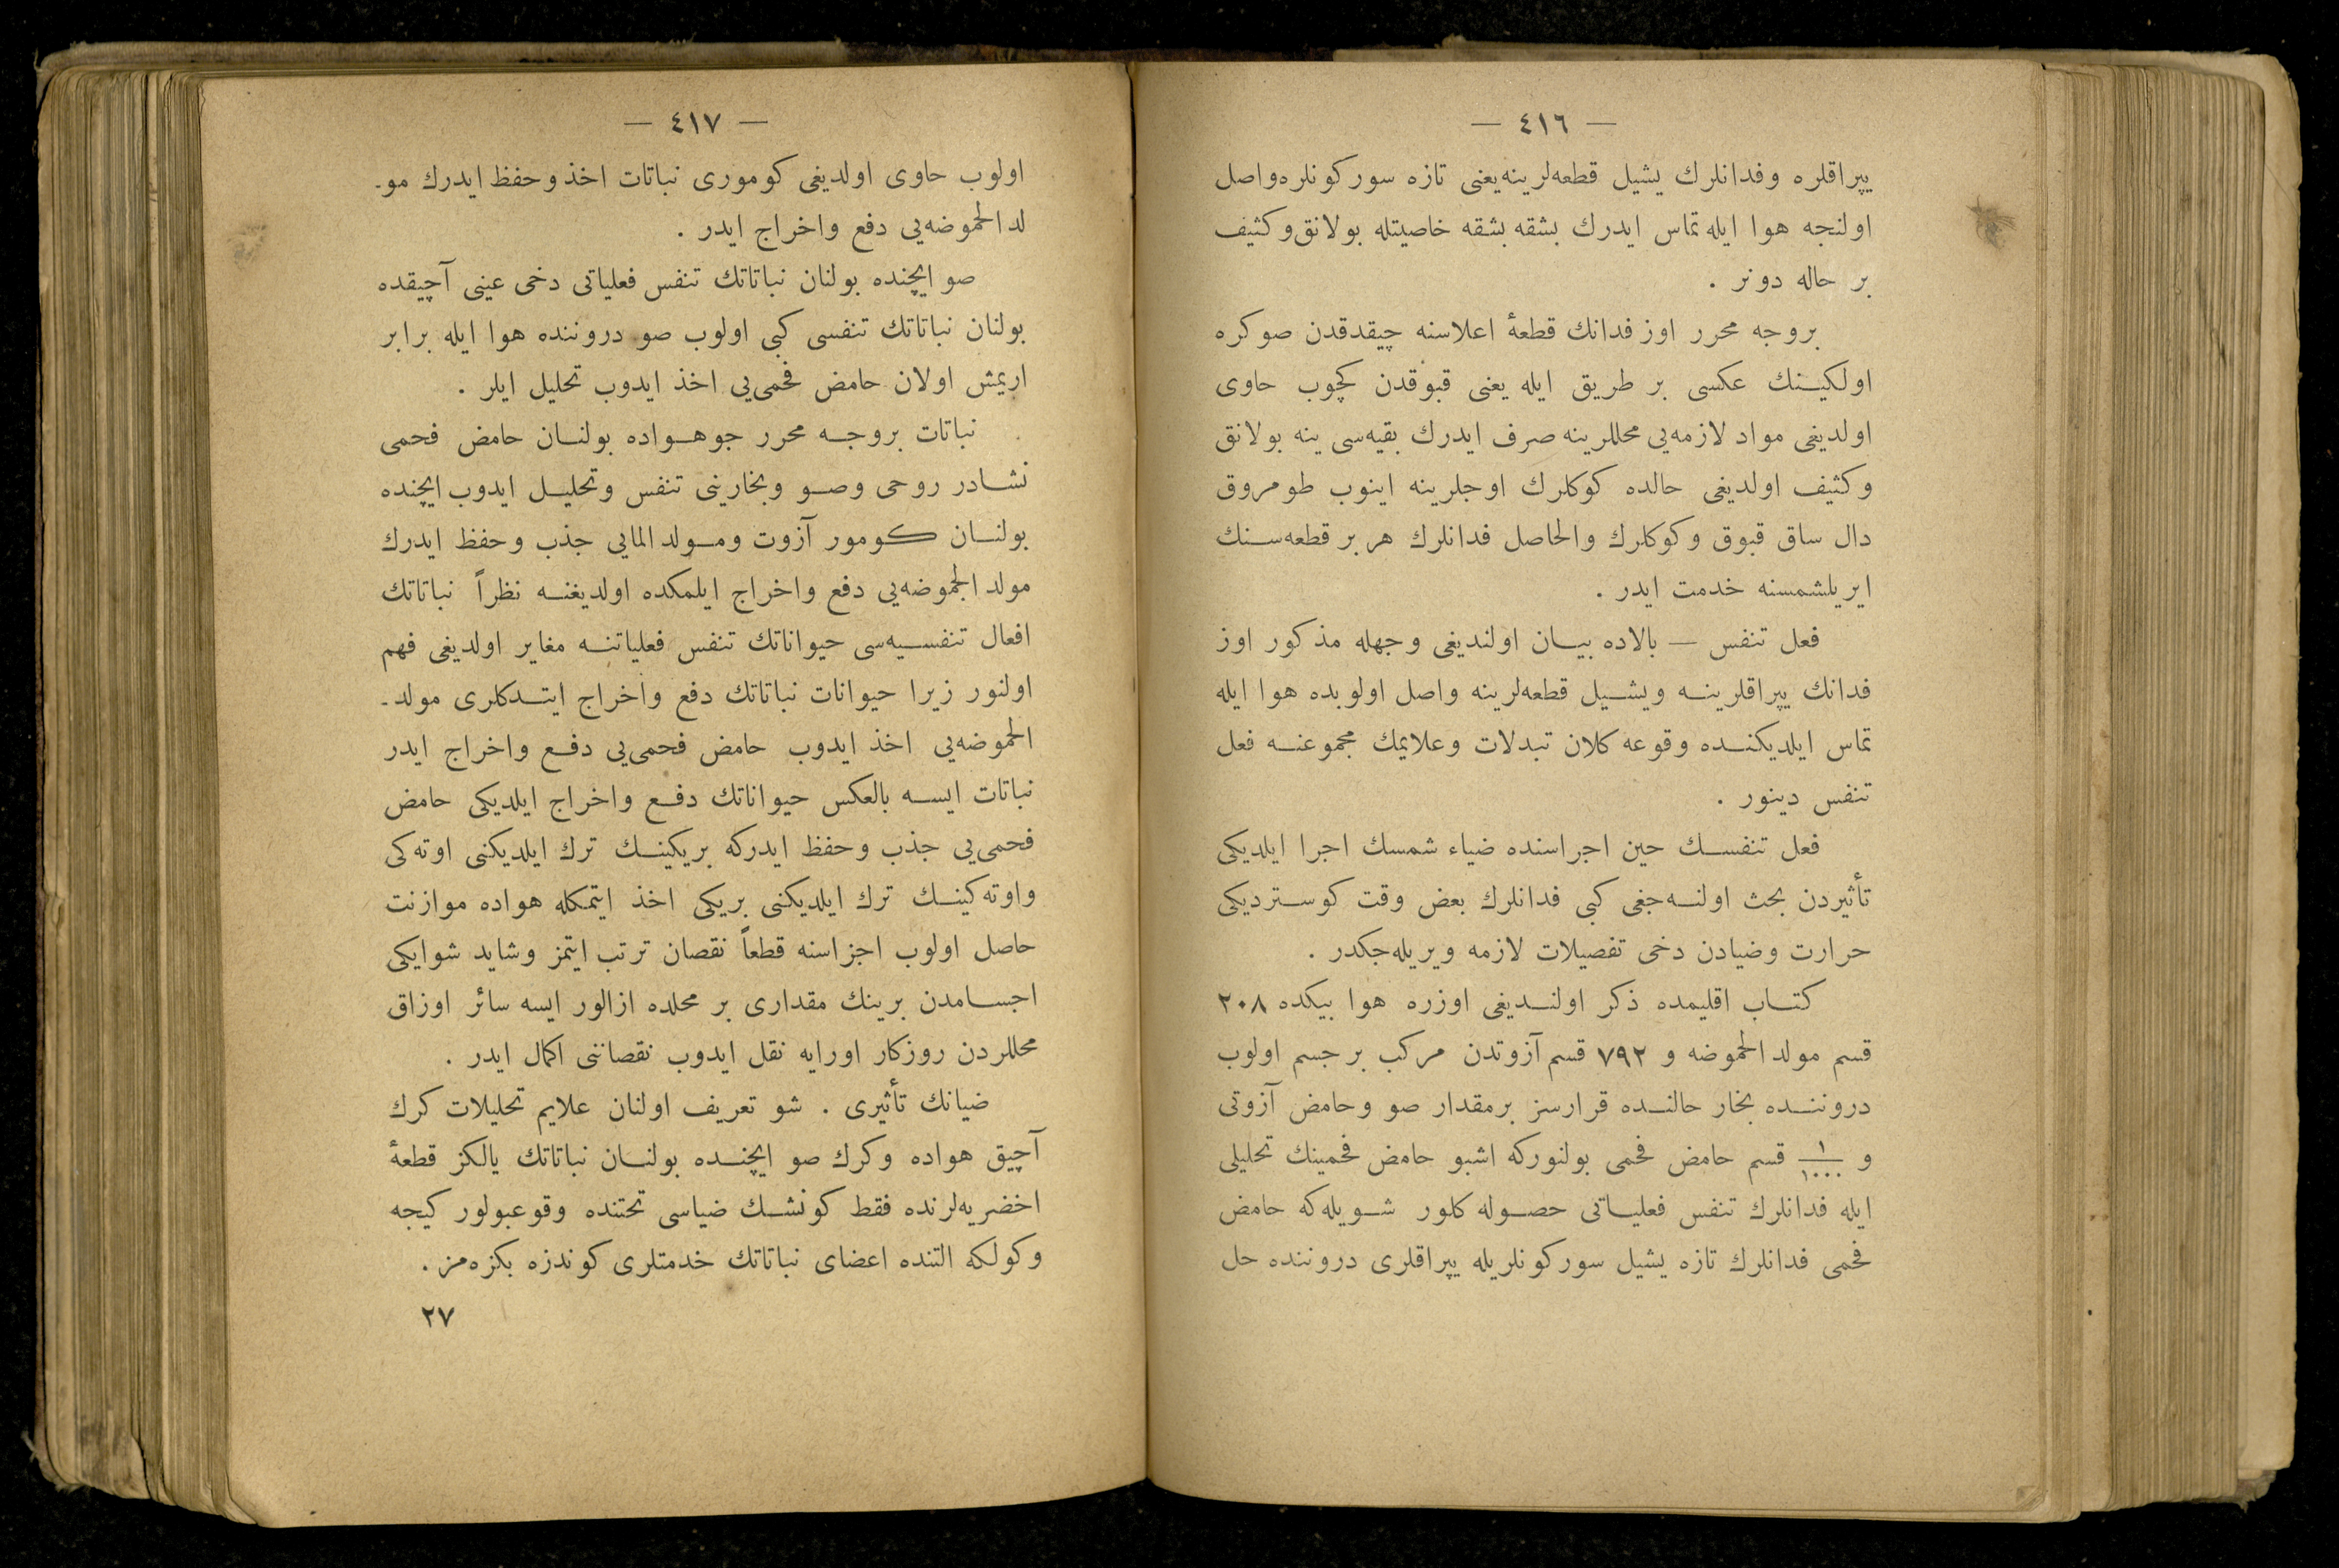 — ٤١٦ —
يپراقلره وفدانلرك يشيل قطعه‌لرينه يعنى تازه سوركونلره واصل
اولنجه هوا ايله تماس ايدرك بشقه بشقه خاصيتله بولانق وكثيف
بر حاله دونر .
بروجه محرر اوز فدانك قطعهٔ اعلاسنه چيقدقدن صوكره
اولكينك عكسى بر طريق ايله يعنى قبوقدن كچوب حاوى
اولديغى مواد لازمه‌يى محللرينه صرف ايدرك بقيه‌سى ينه بولانق
وكثيف اولديغى حالده كوكلرك اوجلرينه اينوب طومروق
دال ساق قبوق وكوكلرك والحاصل فدانلرك هر بر قطعه‌سنك
ايريلشمسنه خدمت ايدر .
فعل تنفس — بالاده بيان اولنديغى وجهله مذكور اوز
فدانك يپراقلرينه ويشيل قطعه‌لرينه واصل اولوبده هوا ايله
تماس ايلديكنده وقوعه كلان تبدلات وعلايمك مجموعنه فعل
تنفس دينور .
فعل تنفسك حين اجراسنده ضياء شمسك اجرا ايلديكى
تأثيردن بحث اولنه‌جغى كبى فدانلرك بعض وقت كوسترديكى
حرارت وضيادن دخى تفصيلات لازمه ويريله‌جكدر .
كتاب اقليمده ذكر اولنديغى اوزره هوا بيكده ٢٠٨
قسم مولد الحموضه و ٧٩٢ قسم آزوتدن مركب بر جسم اولوب
دروننده بخار حالنده قرارسز برمقدار صو وحامض آزوتى
و ١/١٠٠٠ قسم حامض فحمى بولنوركه اشبو حامض فحمينك تحليلى
ايله فدانلرك تنفس فعلياتى حصوله كلور شويله‌كه حامض
فحمى فدانلرك تازه يشيل سوركونلريله يپراقلرى دروننده حل
— ٤١٧ —
اولوب حاوى اولديغى كومورى نباتات اخذ وحفظ ايدرك مو-
لد الحموضه‌يى دفع واخراج ايدر .
صو ايچنده بولنان نباتاتك تنفس فعلياتى دخى عينى آچيقده
بولنان نباتاتك تنفسى كبى اولوب صو دروننده هوا ايله برابر
اريمش اولان حامض فحمى‌يى اخذ ايدوب تحليل ايلر .
نباتات بروجه محرر جوهواده بولنان حامض فحمى
نشادر روحى وصو وبخارينى تنفس وتحليل ايدوب ايچنده
بولنان كومور آزوت ومولد المايى جذب وحفظ ايدرك
مولد الحموضه‌يى دفع واخراج ايلمكده اولديغنه نظراً نباتاتك
افعال تنفسيه‌سى حيواناتك تنفس فعلياتنه مغاير اولديغى فهم
اولنور زيرا حيوانات نباتاتك دفع واخراج ايتدكلرى مولد-
الحموضه‌يى اخذ ايدوب حامض فحمى‌يى دفع واخراج ايدر
نباتات ايسه بالعكس حيواناتك دفع واخراج ايلديكى حامض
فحمى‌يى جذب وحفظ ايدركه بريكينك ترك ايلديكنى اوته‌كى
واوته‌كينك ترك ايلديكنى بريكى اخذ ايتمكله هواده موازنت
حاصل اولوب اجزاسنه قطعاً نقصان ترتب ايتمز وشايد شوايكى
اجسامدن برينك مقدارى بر محلده ازالور ايسه سائر اوزاق
محللردن روزكار اورايه نقل ايدوب نقصاننى اكمال ايدر .
ضيانك تأثيرى . شو تعريف اولنان علايم تحليلات كرك
آچيق هواده وكرك صو ايچنده بولنان نباتاتك يالكز قطعهٔ
اخضريه‌لرنده فقط كونشك ضياسى تحتنده وقوعبولور كيجه
وكولكه التنده اعضاى نباتاتك خدمتلرى كوندزه بكزه‌مز .
٢٧